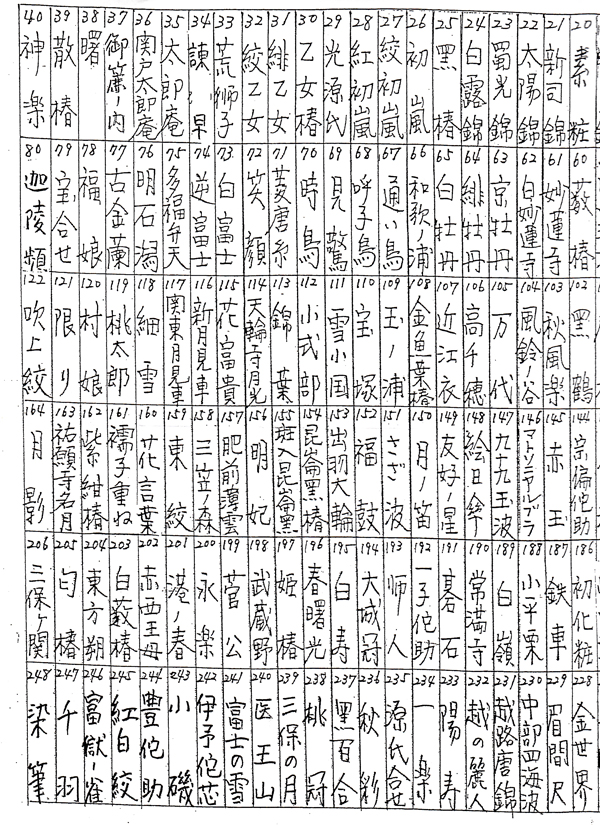 20 素粧
21 新司錦
22 太陽錦
23 蜀光錦
24 白露錦
25 黑椿
26 初嵐
27 絞初嵐
28 紅初嵐
29 光源氏
30 乙女椿
31 緋乙女
32 絞乙女
33 荒獅子
34 諌早
35 太郎庵
36 関戸太郎庵
37 御簾ノ内
38 曙
39 散椿
40 神楽
60 藪椿
61 妙蓮寺
62 白妙蓮寺
63 京牡丹
64 緋牡丹
65 白牡丹
66 和歌ノ浦
67 通い鳥
68 呼子鳥
69 見驚
70 時鳥
71 菱唐糸
72 笑顔
73 白富士
74 逆富士
75 多福弁天
76 明石潟
77 古金蘭
78 福娘
79 宝合せ
80 迦陵頻
102 黑鶴
103 秋風楽
104 風鈴ノ谷
105 万代
106 高千穂
107 近江衣
108 金魚葉椿
109 玉ノ浦
110 宝塚
111 雪小国
112 小式部
113 錦葉
114 天輪寺月光
115 花富貴
116 新月見車
117 関東月見車
118 細雪
119 桃太郎
120 村娘
121 限り
122 吹上絞
144 宗偏佗助
145 赤玉
146
147 九十九玉波
148 絵日傘
149 友好ノ星
150 月ノ笛
151 さざ波
152 福鼓
153 出羽大輪
154 昆崙黑椿
155 斑入昆崙黑
156 明妃
157 肥前薄雲
158 三笠ノ森
159 東絞
160 花言葉
161 襦子重ね
162 紫紺椿
163 祐願寺名月
164 月影
186 初化粧
187 鉄車
188 小平栗
189 白嶺
190 常満寺
191 碁石
192 一子佗助
193 师人
194 大城冠
195 白寿
196 春曙光
197 姫椿
198 武蔵野
199 菅公
200 永楽
201 港ノ春
202 赤西王母
203 白藪椿
204 東方朔
205 匂椿
206 三保ヶ関
228 金世界
229 眉間尺
230 中部四海波
231 越路唐錦
232 越の麗人
233 陽寿
234 一楽
235 源氏合せ
236 秋彩
237 黑百合
238 桃冠
239 三保の月
240 医王山
241 富士の雪
242 伊予佗芯
243 小磯
244 豊佗助
245 紅白絞
246 富獄ノ雀
247 千羽
248 染筆